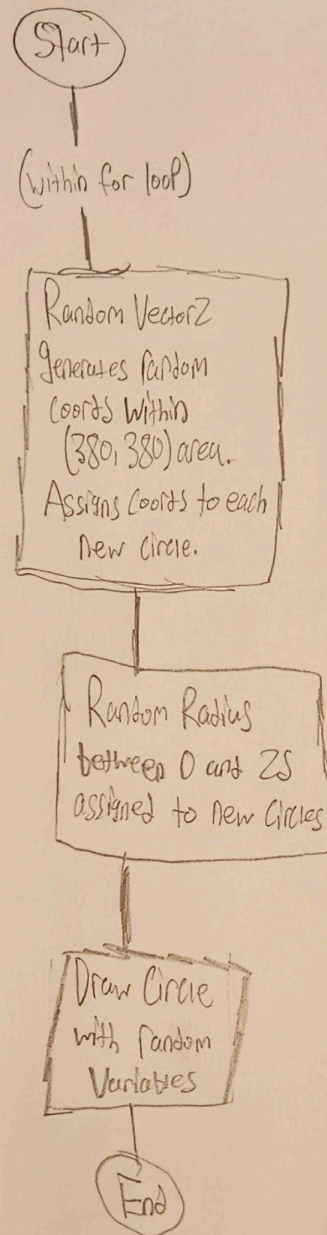 Start
(within for loop)
Random Vector2
generates random
coords within
(380, 380) area.
Assigns coords to each
new circle.
Random Radius
between 0 and 25
assigned to new circles
Draw Circle
with random
Variables
End